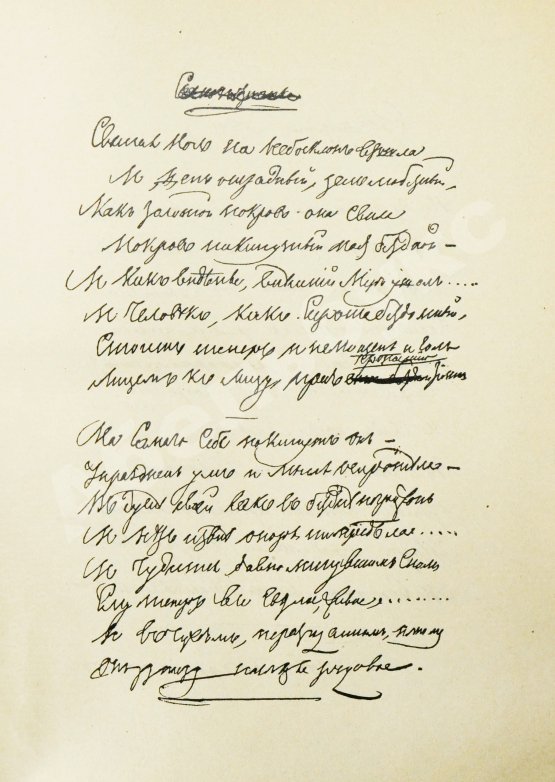 Самосознание
Святая ночь на небосклонъ взошла
И день отрадный, день любезный,
Какъ золотой покровъ она свила
Покровъ накинутый надъ бездной –
И какъ виденье, внешний миръ ушолъ.....
И Человѣкъ, какъ Сирота бездомный,
Стоитъ теперь и немощенъ и голъ
Лицемъ къ лицу предъ пропастию темной
На Самаго Себя покинутъ онъ –
Упраздненъ умъ и мысль осиротѣла –
Въ душѣ своей какъ въ безднѣ погруженъ
И нѣтъ извнѣ опоръ ни предѣла.....
И чудится давно минувшимъ сномъ
Ему теперь все свѣтлое, живое........
И въ чуждомъ, неразгаданномъ, ночномъ
Онъ узнаетъ наслѣдье родовое.